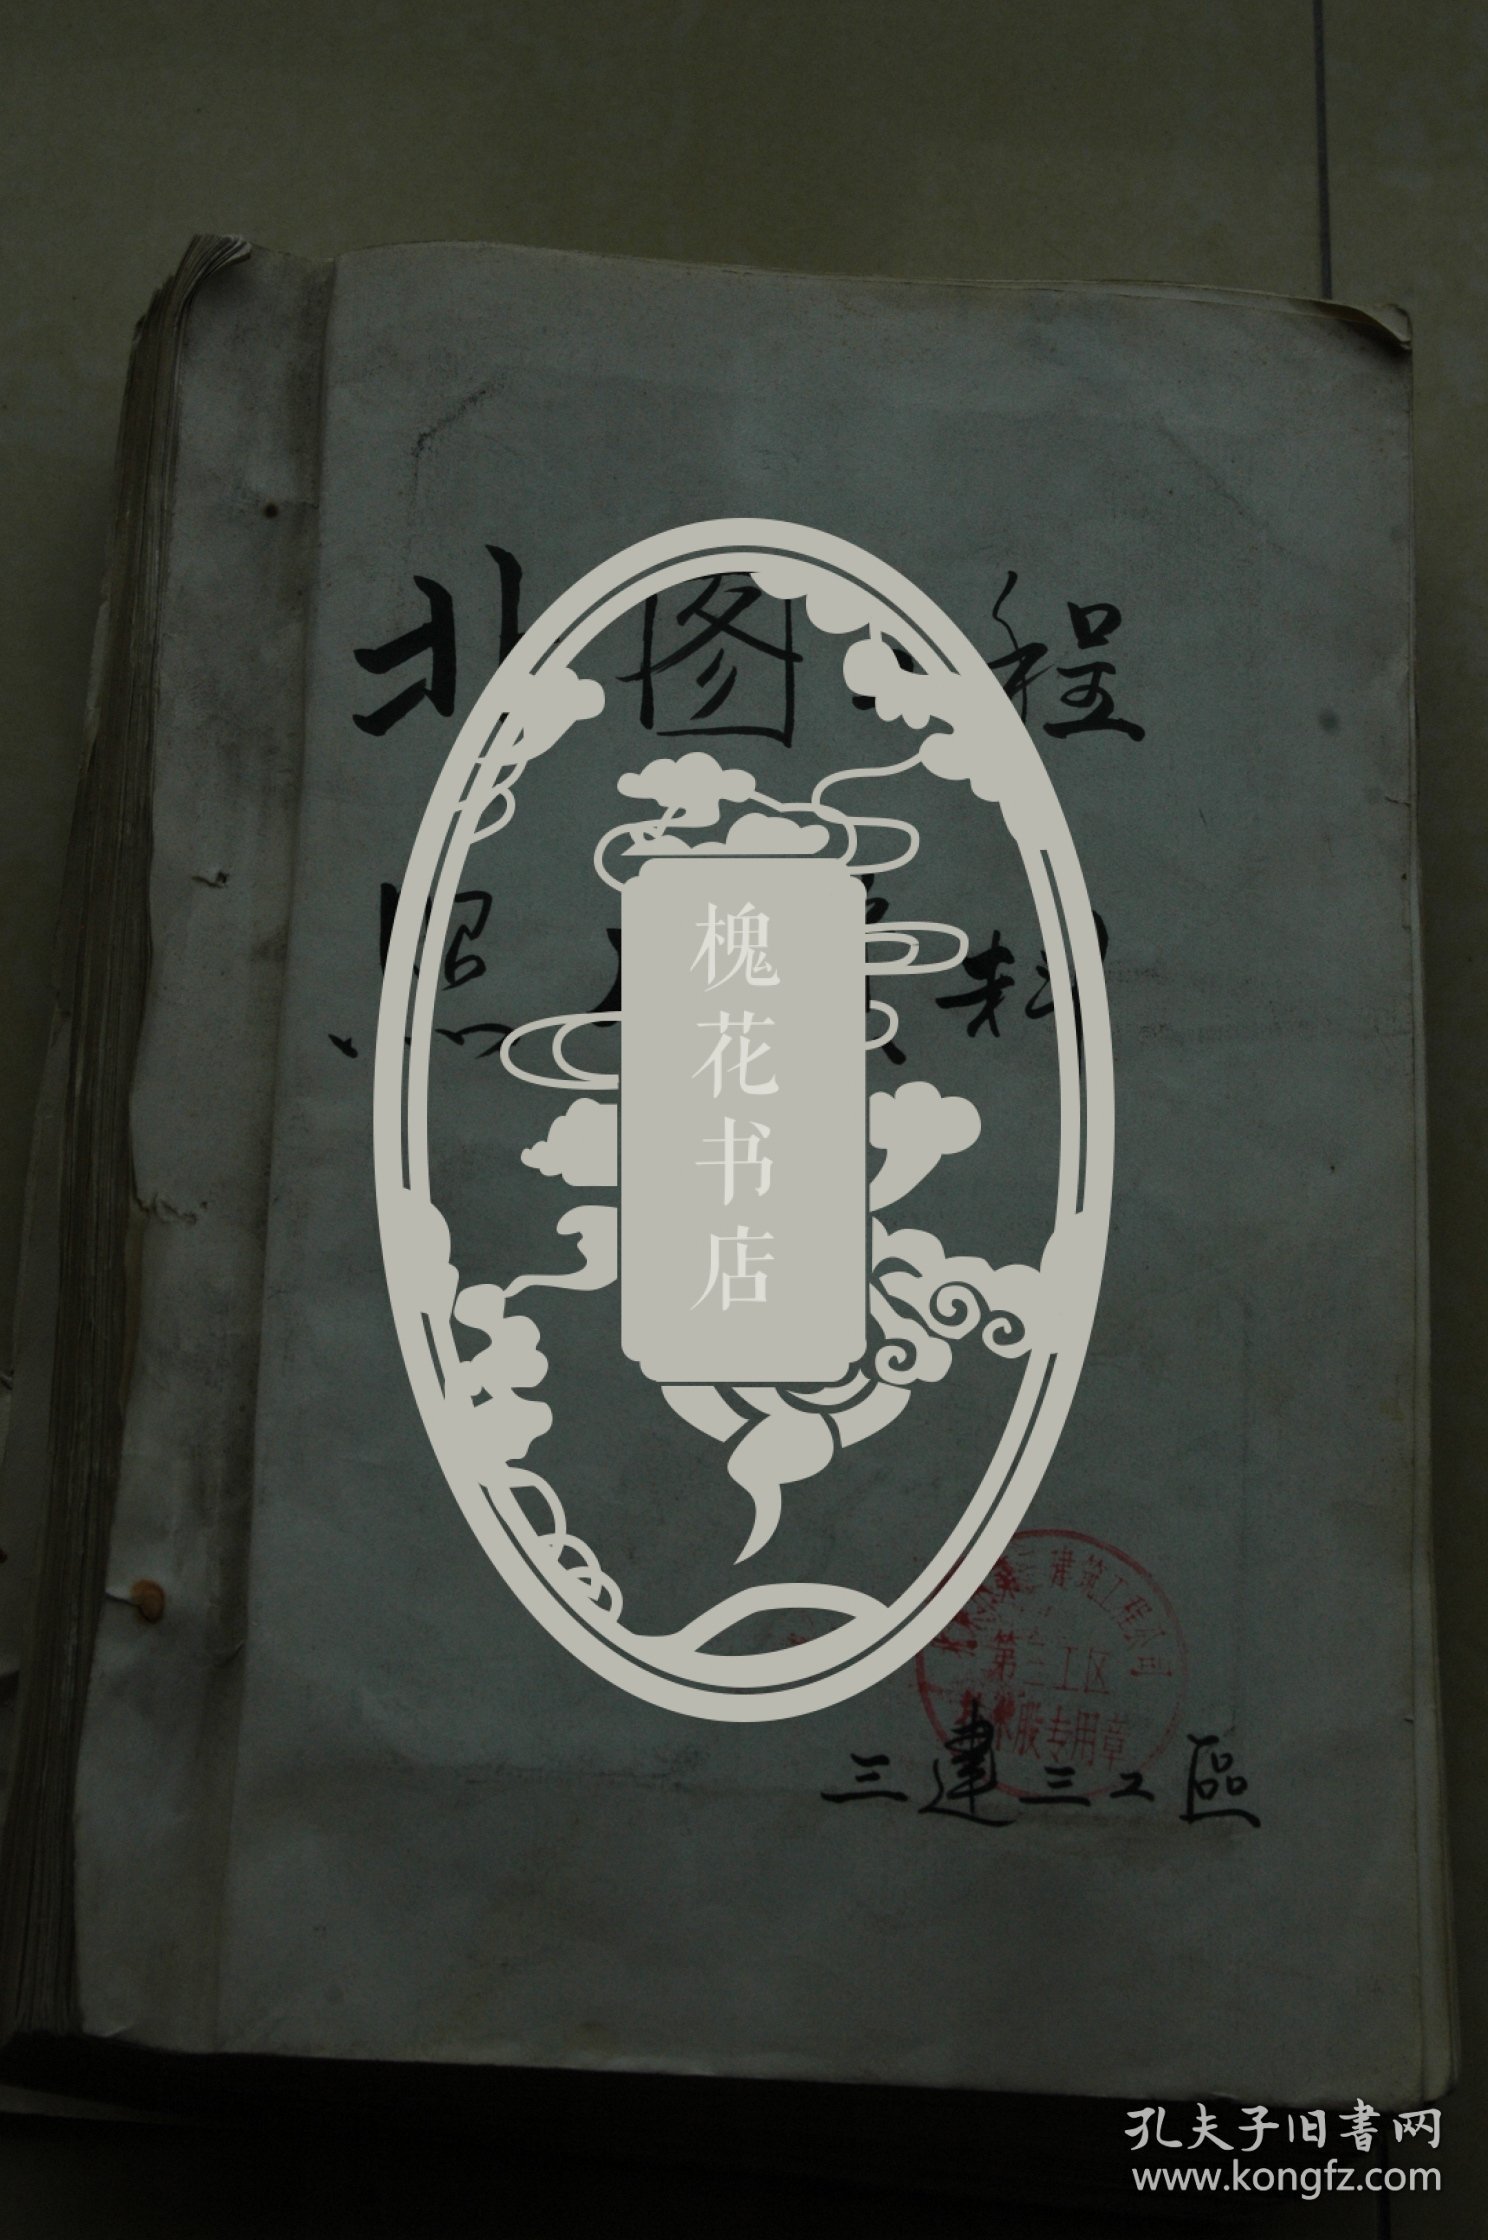 北图 程
照 料
槐花书店
第三建筑工程公司
第三工区
技术股专用章
三建三工區
孔夫子旧書网
www.kongfz.com